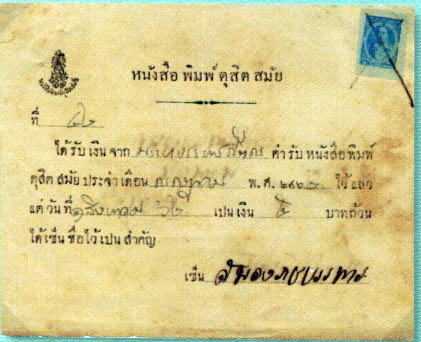 หนังสือ พิมพ์ ดุสิต สมัย
ที่ ๘๒
ได้รับ เงิน จาก ค่ารับ หนังสือ พิมพ์
ดุสิต สมัย ประจำเดือน กรกฎาคม พ. ศ. ๒๔๖๒ ไว้ แล้ว
แต่ วัน ที่ ๑ สิงหาคม ๖๒ เปน เงิน ๕ บาทถ้วน
ได้ เซ็น ชื่อ ไว้ เปน สำคัญ
เซ็น